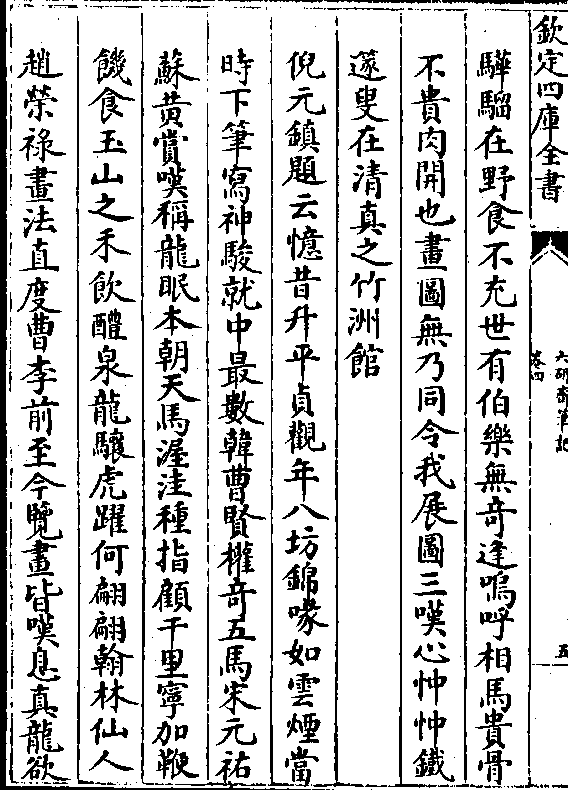 欽定四庫全書
六研齋筆記
卷四
五
驊騮在野食不充世有伯樂無奇逢嗚呼相馬貴骨
不貴肉開也畫圖無乃同令我展圖三嘆心忡忡鐵
篴叟在清真之竹洲館
倪元鎮題云憶昔升平貞觀年八坊錦喙如雲煙當
時下筆寫神駿就中最數韓曹賢權奇五馬宋元祐
蘇黄賞嘆稱龍眠本朝天馬渥洼種指顧千里寧加鞭
饑食玉山之禾飲醴泉龍驤虎躍何翩翩翰林仙人
趙榮禄畫法直度曹李前至今覽畫皆嘆息真龍欲